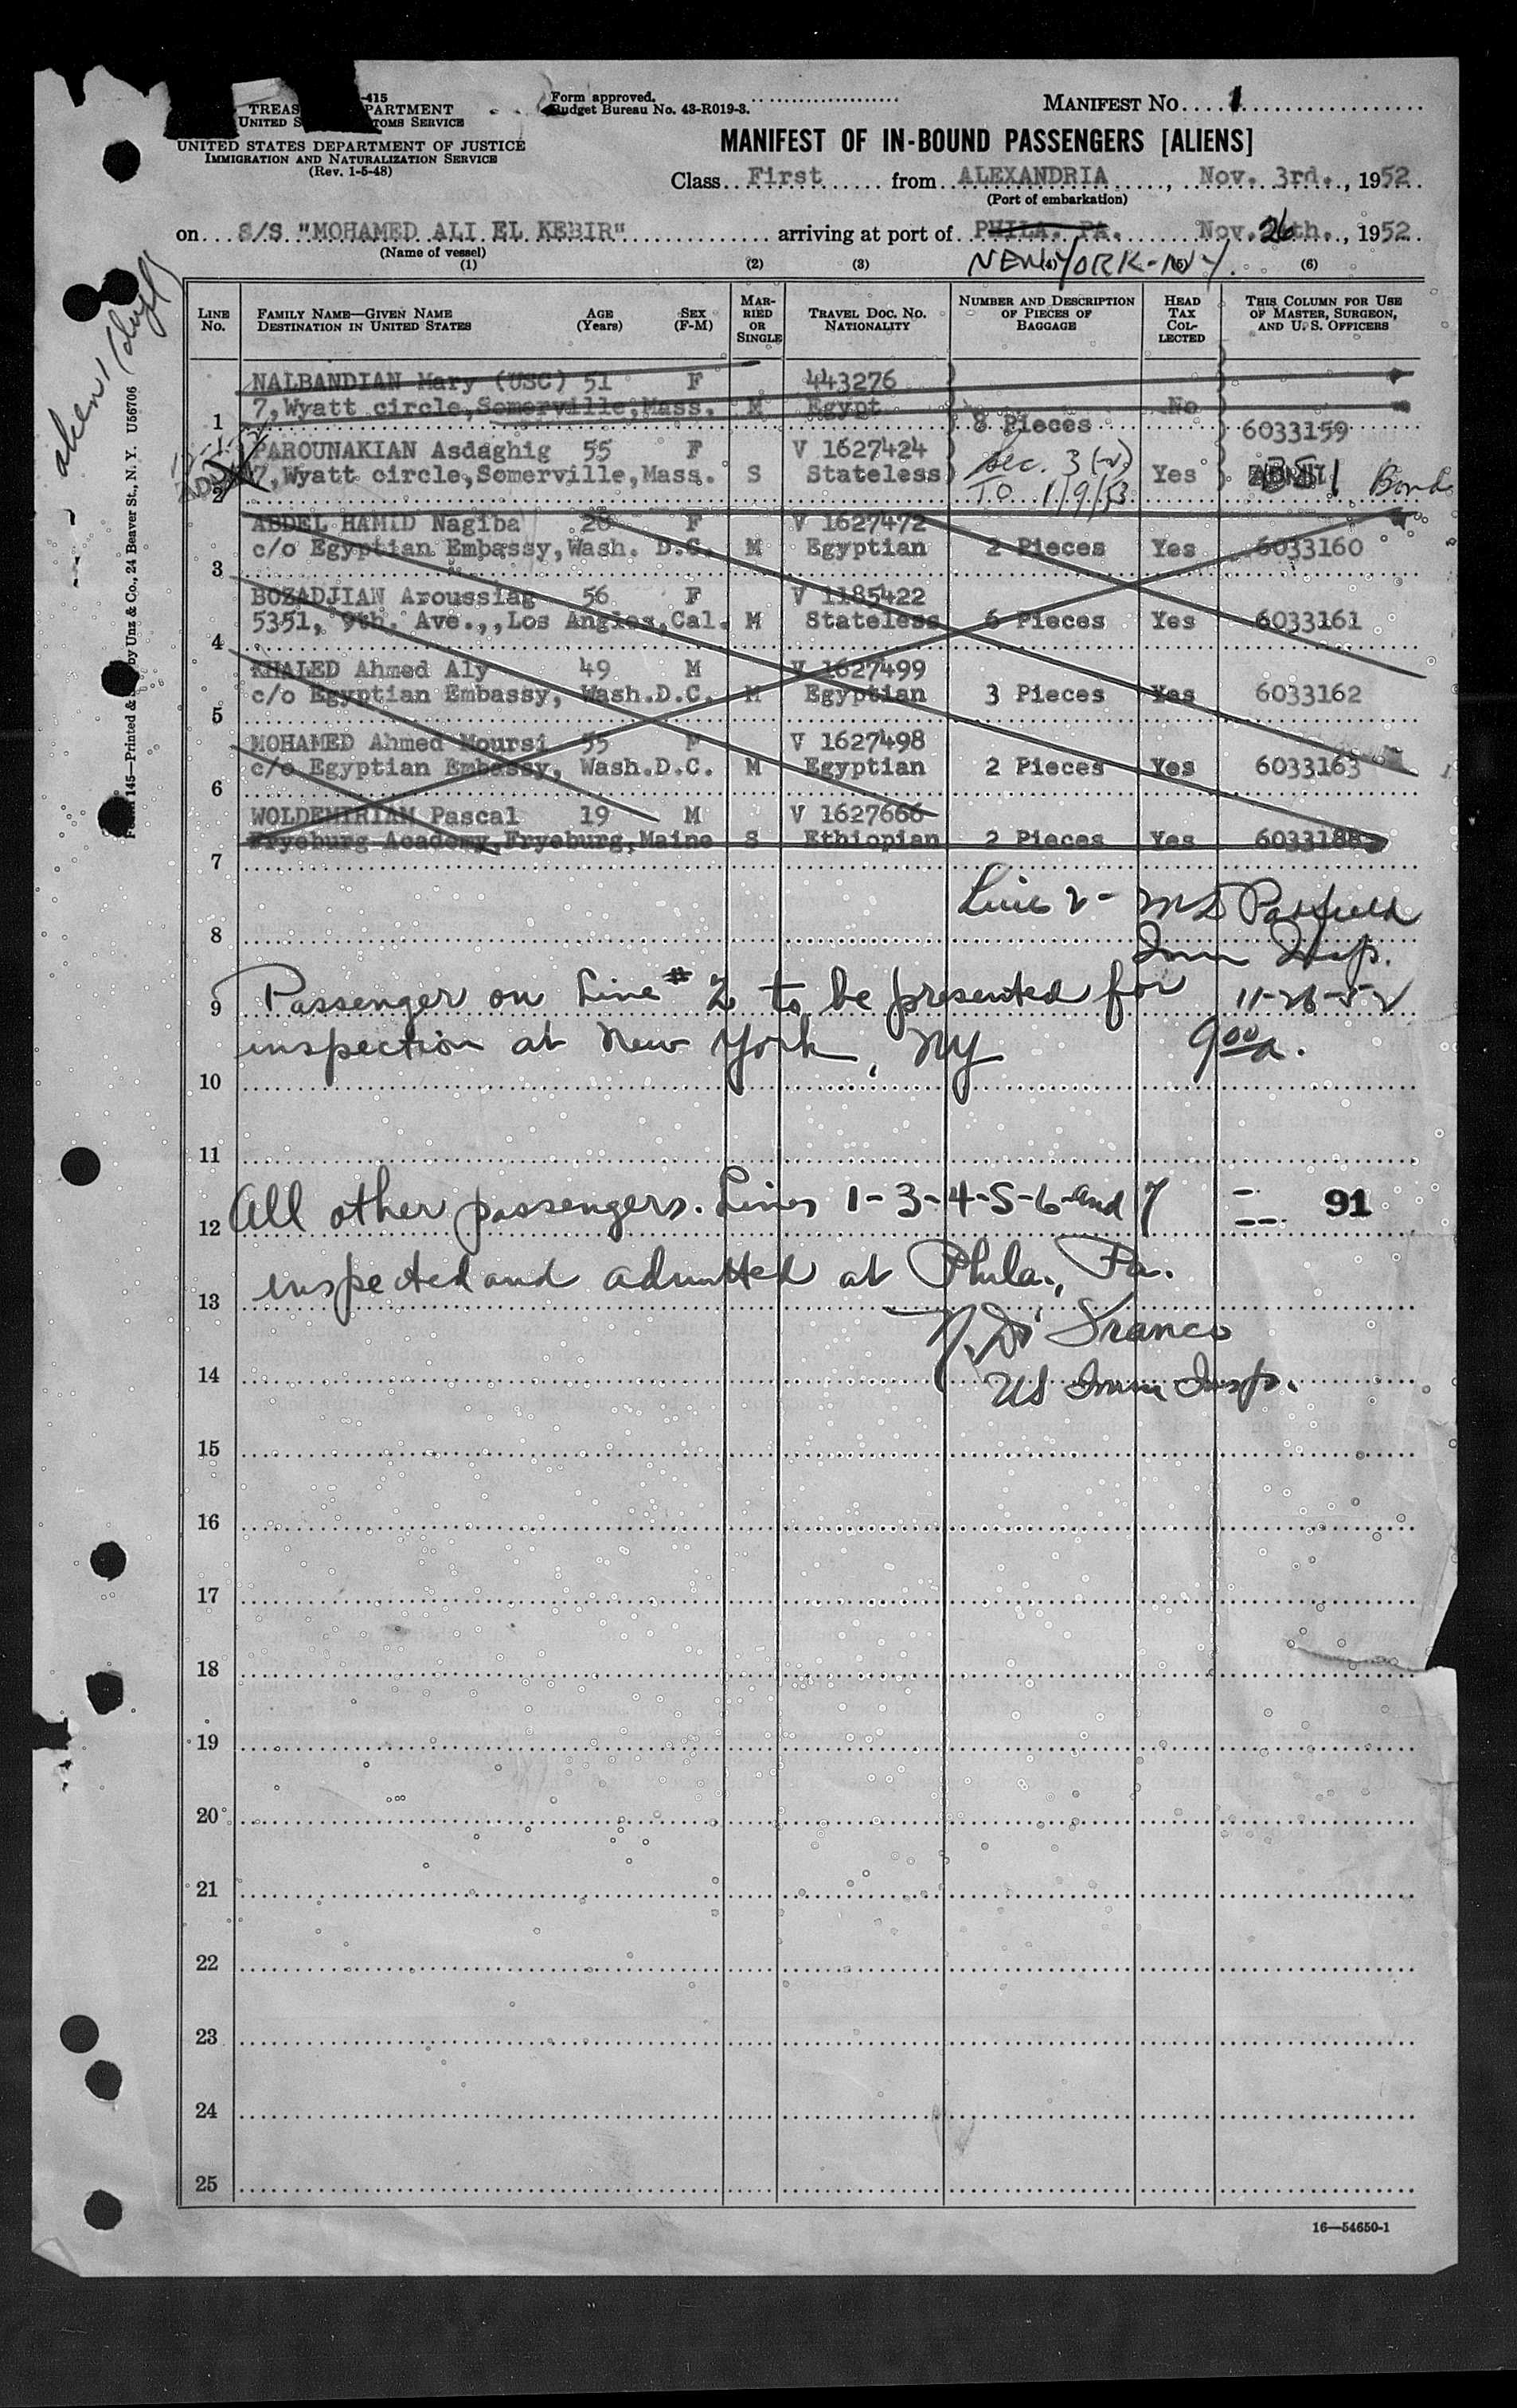 -415
TREAS PARTMENT
UNITED S TOMS SERVICE
UNITED STATES DEPARTMENT OF JUSTICE
IMMIGRATION AND NATURALIZATION SERVICE
(Rev. 1-5-48)
Form approved.
Budget Bureau No. 43-R019-3.
MANIFEST NO. 1
MANIFEST OF IN-BOUND PASSENGERS [ALIENS]
Class First from ALEXANDRIA, Nov. 3rd., 1952
(Port of embarkation)
on S/S "MOHAMED ALI EL KEBIR" arriving at port of PHILA. PA. Nov. 26th., 1952
(Name of vessel)
NEW YORK-NY.
(1) (2) (3) (4) (5) (6)
LINE No. FAMILY NAME—GIVEN NAME DESTINATION IN UNITED STATES AGE (Years) SEX (F-M) MARRIED OR SINGLE TRAVEL DOC. NO. NATIONALITY NUMBER AND DESCRIPTION OF PIECES OF BAGGAGE HEAD TAX COLLECTED THIS COLUMN FOR USE OF MASTER, SURGEON, AND U. S. OFFICERS
NALBANDIAN Mary (USC) 51 F 443276
7,Wyatt circle,Somerville,Mass. M Egypt No
1 8 Pieces 6033159
PAROUNAKIAN Asdaghig 55 F V 1627424 Sec. 3(2)
7,Wyatt circle,Somerville,Mass. S Stateless Yes Bond
2 TO 1/9/53
ABDEL HAMID Nagiba 28 F V 1627472
c/o Egyptian Embassy,Wash. D.C. M Egyptian 2 Pieces Yes 6033160
3
BOZADJIAN Aroussiag 56 F V 1185422
5351, 9th. Ave.,,Los Angles,Cal. M Stateless 6 Pieces Yes 6033161
4
KHALED Ahmed Aly 49 M V 1627499
c/o Egyptian Embassy, Wash.D.C. M Egyptian 3 Pieces Yes 6033162
5
MOHAMED Ahmed Moursi 55 F V 1627498
c/o Egyptian Embassy, Wash.D.C. M Egyptian 2 Pieces Yes 6033163
6
WOLDEMIRIAM Pascal 19 M V 1627666
Fryeburg Academy,Fryeburg,Maine S Ethiopian 2 Pieces Yes 6033188
7
Line 2- Padfield
8 Imm Insp.
9 Passenger on Line #2 to be presented for 11-26-52
inspection at New York, NY 9 00 a.
10
11
12 All other passengers. Lines 1-3-4-5-6-and 7 91
inspected and admitted at Phila., Pa.
13
N. Di Franco
14 US Imm Insp.
15
16
17
18
19
20
21
22
23
24
25
16—54650-1
145—Printed & by Unz & Co., 24 Beaver St., N. Y. U56706